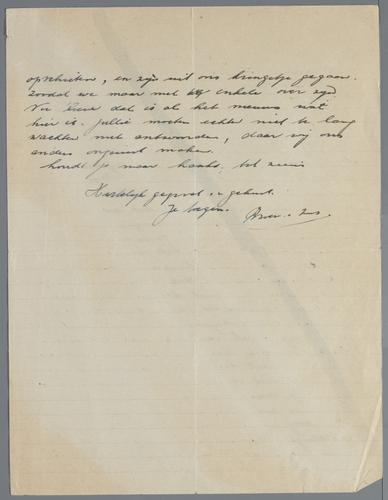 opschieten, en zijn uit ons kringetje gegaan.
zoodat we maar met enkele over zijn
Nu dat is al het nieuws wat
hier is. Jullie moeten echter niet te lang
wachten met antwoorden, daar wij ons
anders ongerust maken.
houdt je maar haaks, tot ziens
Hartelijk gegroet en gekust.
Je liefh.
Broer en Zus.